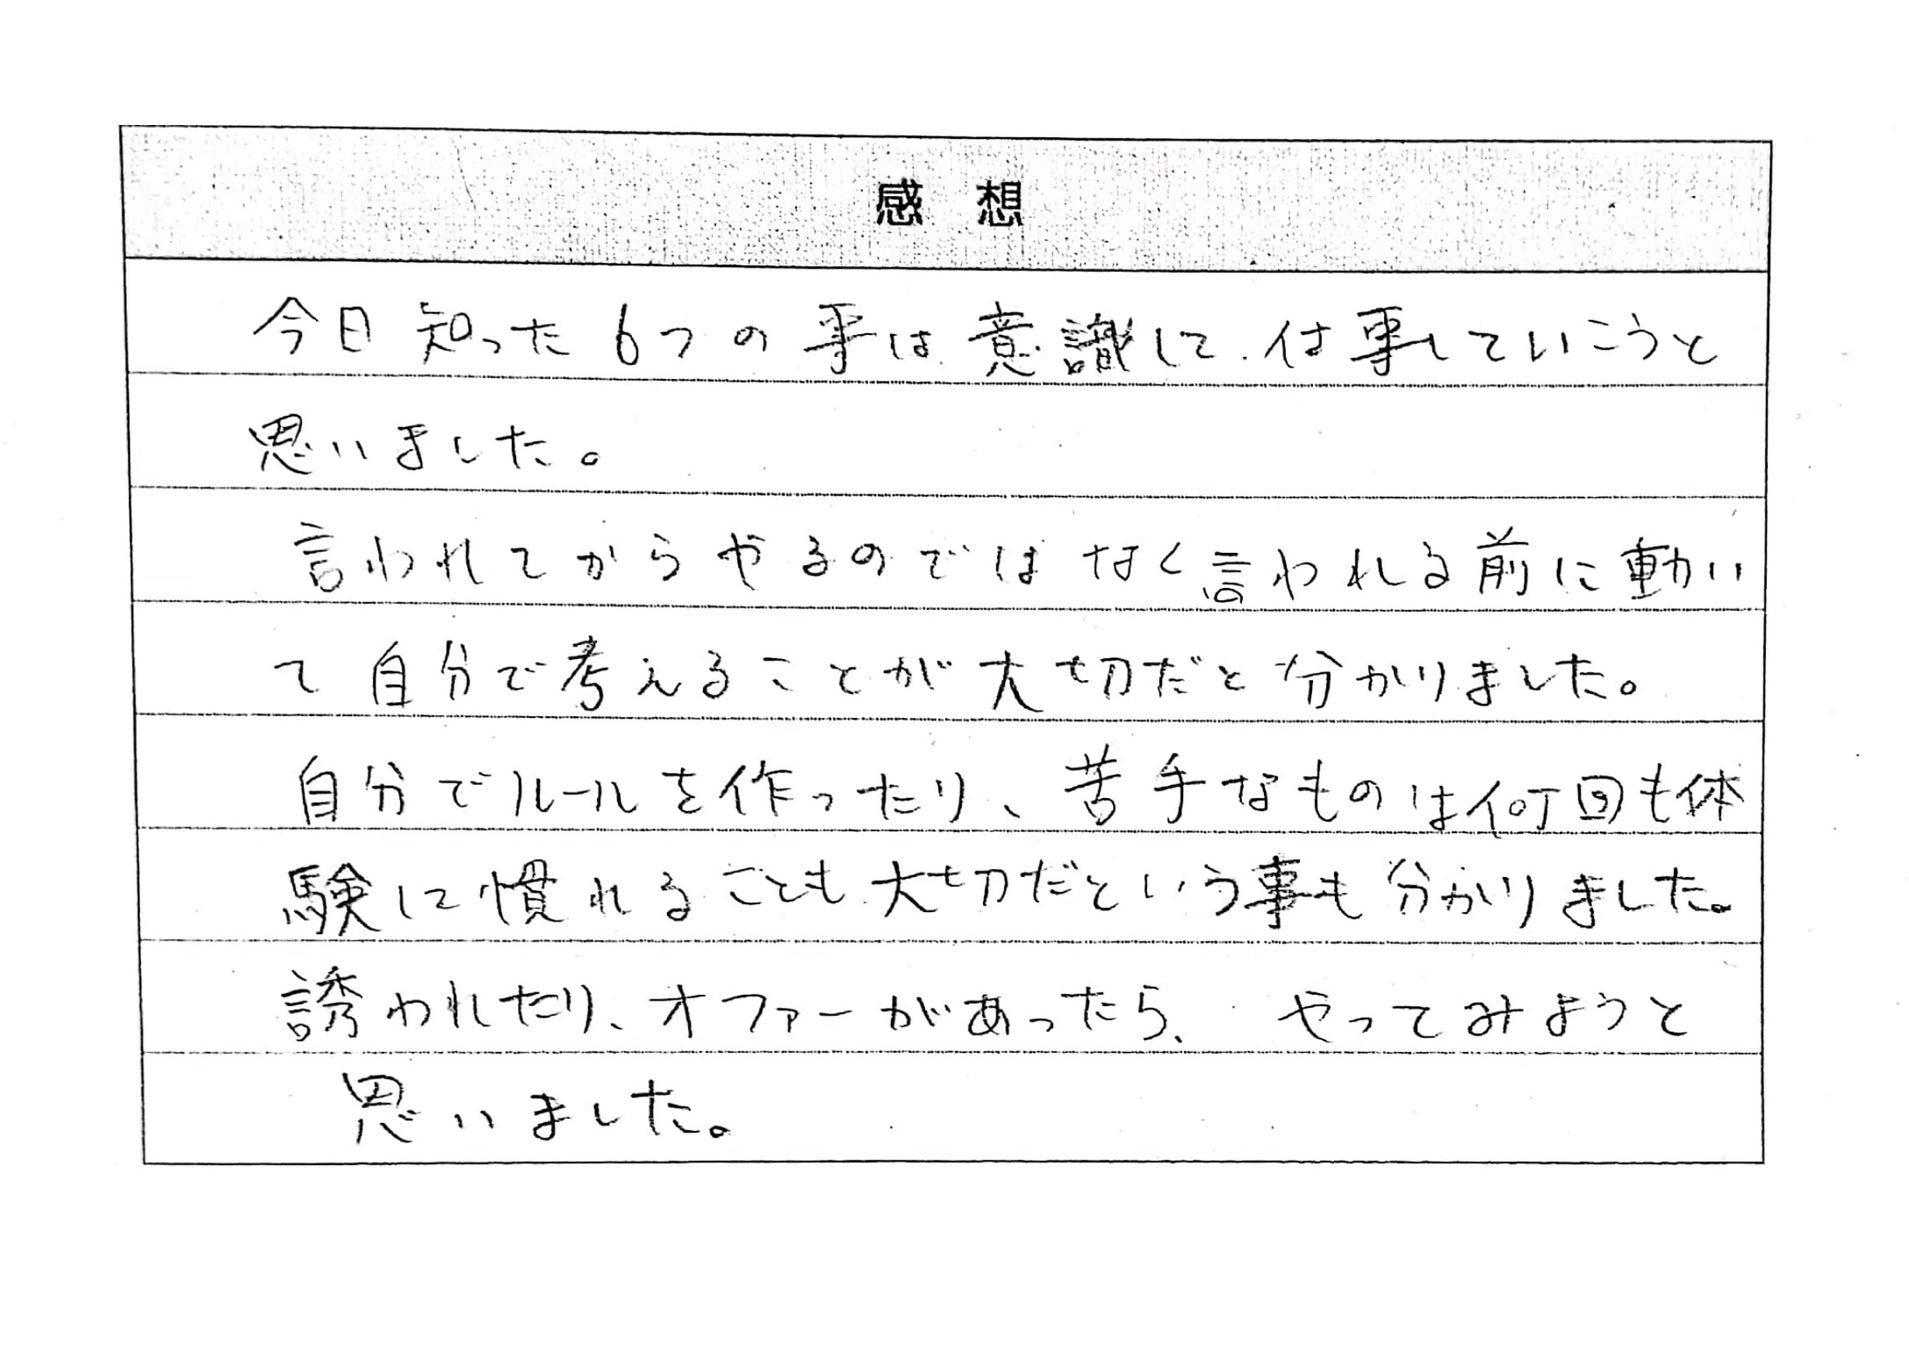 感 想
今日知った6つの事は意識して仕事していこうと
思いました。
言われてからやるのではなく言われる前に動い
て自分で考えることが大切だと分かりました。
自分でルールを作ったり、苦手なものは何回も体
験して慣れることも大切だという事も分かりました。
誘われたり、オファーがあったら、やってみようと
思いました。